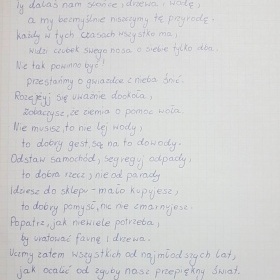 Ty dałaś nam słońce, drzewa i wodę,
a my bezmyślnie niszczymy tę przyrodę.
Każdy w tych czasach wszystko ma,
widzi czubek swego nosa, o siebie tylko dba.
Nie tak powinno być!
przestańmy o gwiazdce z nieba śnić.
Rozejrzyj się uważnie dookoła,
zobaczysz, że ziemia o pomoc woła.
Nie musisz, to nie lej wody,
to dobry gest, są na to dowody.
Odstaw samochód, segreguj odpady,
to dobra rzecz, nie od parady.
Idziesz do sklepu - mało kupujesz,
to dobry pomysł, nic nie zmarnujesz.
Popatrz, jak niewiele potrzeba,
by uratować faunę i drzewa.
Uczmy zatem wszystkich od najmłodszych lat,
jak ocalić od zguby nasz przepiękny świat.